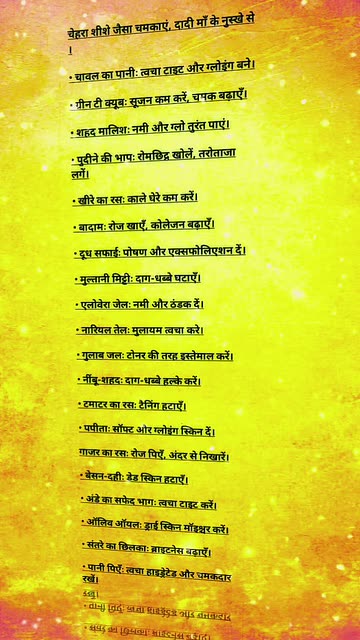 चेहरा शीशे जैसा चमकाएं, दादी माँ के नुस्खे से
।
• चावल का पानी: त्वचा टाइट और ग्लोइंग बने।
• ग्रीन टी क्यूब: सूजन कम करें, चमक बढ़ाएँ।
• शहद मालिश: नमी और ग्लो तुरंत पाएं।
• पुदीने की भाप: रोमछिद्र खोलें, तरोताजा
लगें।
• खीरे का रस: काले घेरे कम करें।
• बादाम: रोज खाएँ, कोलेजन बढ़ाएँ।
• दूध सफाई: पोषण और एक्सफोलिएशन दें।
• मुल्तानी मिट्टी: दाग-धब्बे घटाएँ।
• एलोवेरा जेल: नमी और ठंडक दें।
• नारियल तेल: मुलायम त्वचा करे।
• गुलाब जल: टोनर की तरह इस्तेमाल करें।
• नींबू-शहद: दाग-धब्बे हल्के करें।
• टमाटर का रस: टैनिंग हटाएँ।
• पपीता: सॉफ्ट ओर ग्लोइंग स्किन दें।
गाजर का रस: रोज पिएँ, अंदर से निखारें।
• बेसन-दही: डेड स्किन हटाएँ।
• अंडे का सफेद भाग: त्वचा टाइट करें।
• ऑलिव ऑयल: ड्राई स्किन मॉइश्चर करें।
• संतरे का छिलका: ब्राइटनेस बढ़ाएँ।
• पानी पिएँ: त्वचा हाइड्रेटेड और चमकदार
रखें।